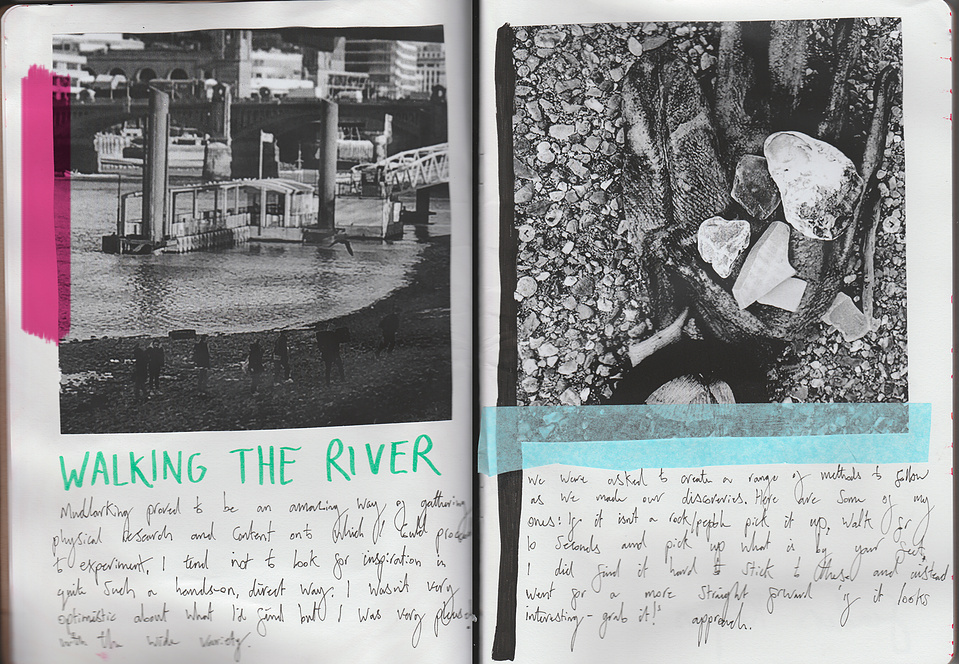 WALKING THE RIVER
Mudlarking proved to be an amazing way of gathering
physical research and content onto which I could
to experiment. I tend not to look for inspiration in
quite such a hands-on, direct way. I wasn't very
optimistic about what I'd find but I was very pleased
with the wide variety.
We were asked to create a range of methods to follow
as we made our discoveries. Here are some of my
ones: If it isn't a rock/pebble pick it up, Walk for
10 seconds and pick up what is by your feet.
I did find it hard to stick to these and instead
went for a more straight forward 'if it looks
interesting - grab it!' approach.